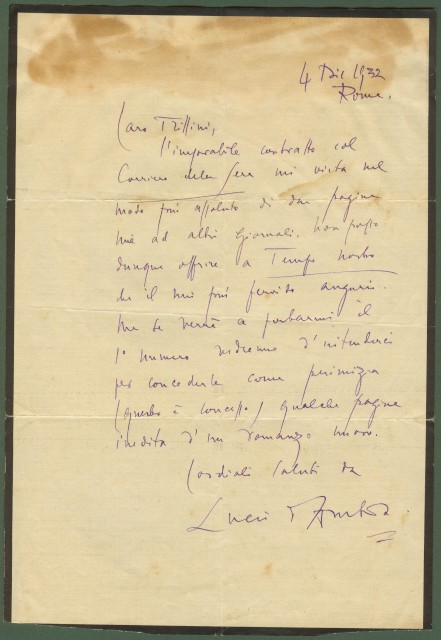 4 Dic 1932
Roma.
Caro Trissini,
l'implacabile contratto col
Corriere della Sera mi vieta nel
modo più assoluto di dar pagine
mie ad altri giornali. Non posso
dunque offrire a Tempo nostro
che il mio più fervido augurio.
Ma se verrà a portarmi il
1° numero vedremo d'intenderci
per concederle come primizia
(questo è concesso) qualche pagina
inedita d'un romanzo nuovo.
Cordiali saluti da
Lucio d'Ambra